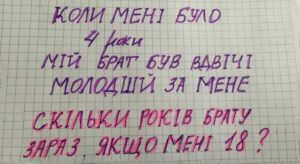 КОЛИ МЕНІ БУЛО
4 роки
МІЙ БРАТ БУВ ВДВІЧІ
МОЛОДШИЙ ЗА МЕНЕ
СКІЛЬКИ РОКІВ БРАТУ
ЗАРАЗ, ЯКЩО МЕНІ 18?